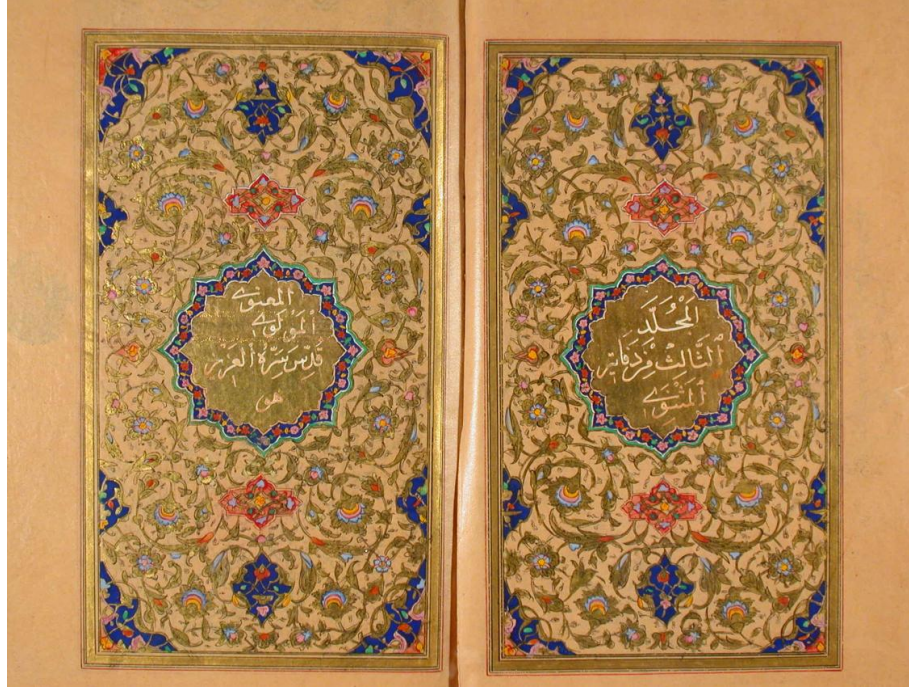 المجلد
الثالث من دفاتر
المثنوي
المعنوي
المولوي
قدس سره العزيز
هو